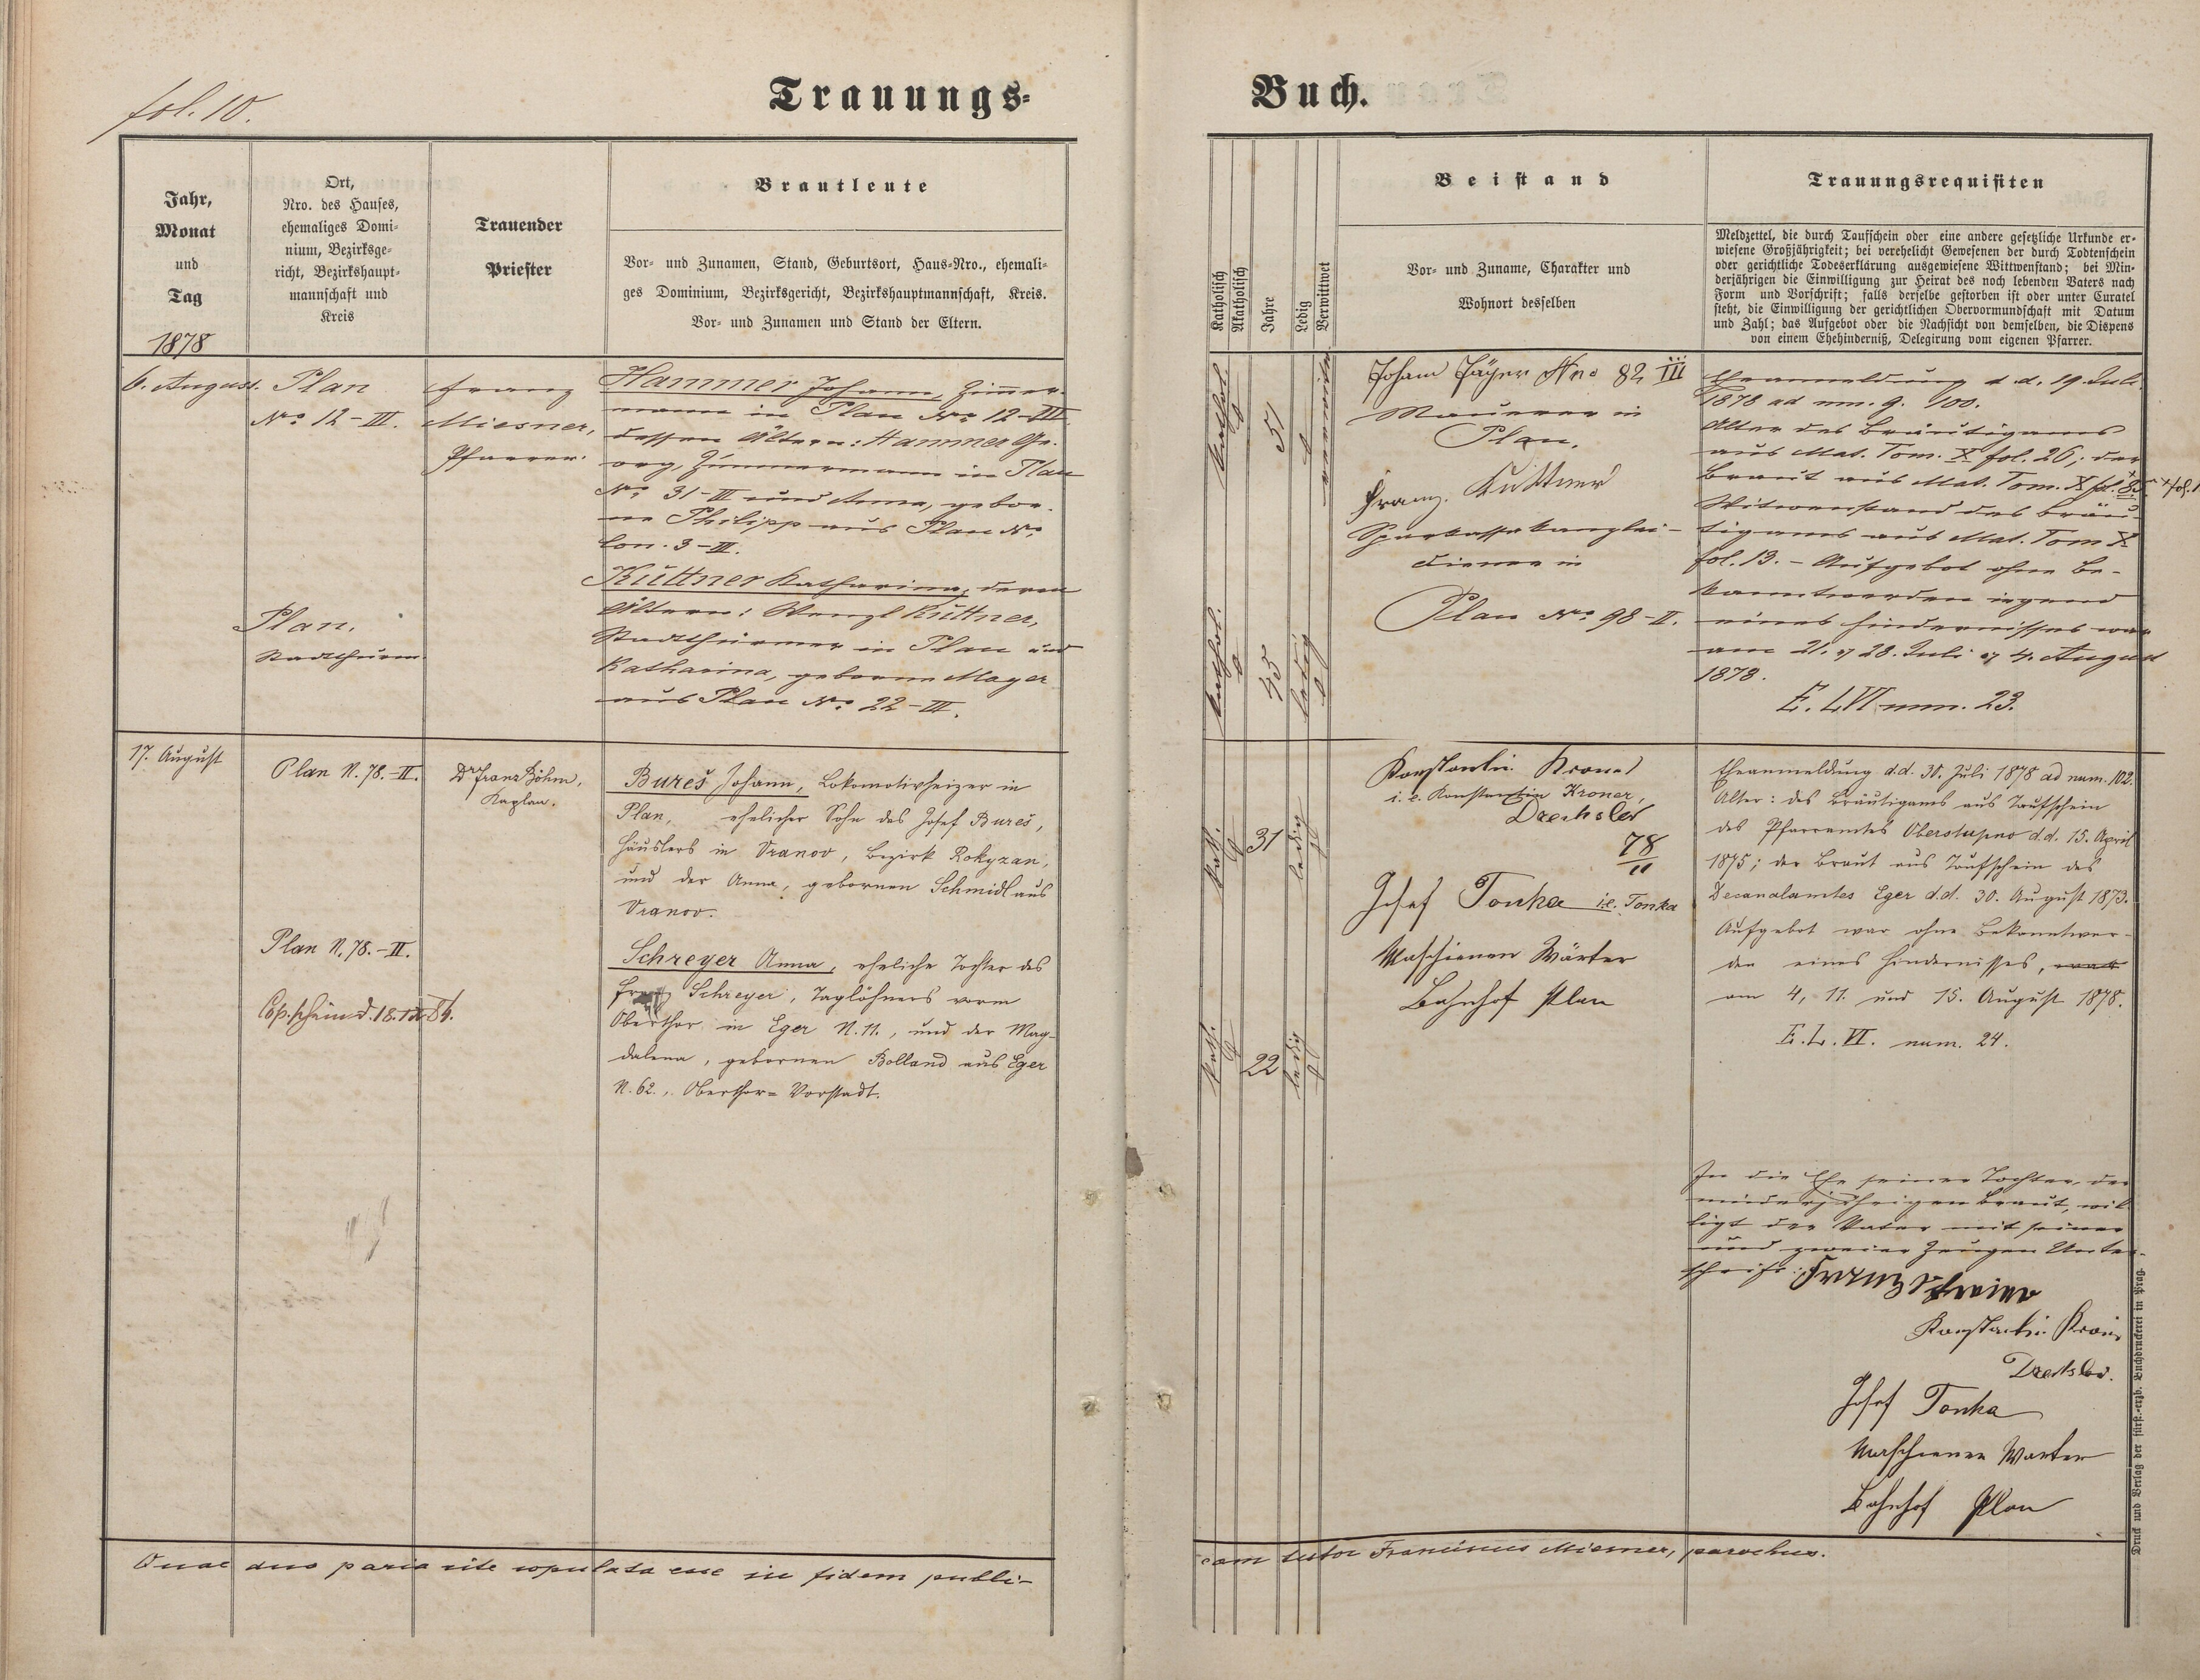 fol. 10.
Trauungs-
Buch.
Jahr,
Monat
und
Tag
1878
Ort,
Nro. des Hauses,
ehemaliges Domi-
nium, Bezirksge-
richt, Bezirkshaupt-
mannschaft und
Kreis
Trauender
Priester
Brautleute
Vor- und Zunamen, Stand, Geburtsort, Haus-Nro., ehemali-
ges Dominium, Bezirksgericht, Bezirkshauptmannschaft, Kreis.
Vor- und Zunamen und Stand der Eltern.
Katholisch
Akatholisch
Jahre
Ledig
Verwittwet
Beistand
Vor- und Zuname, Charakter und
Wohnort desselben
Trauungsrequisiten
Meldzettel, die durch Taufschein oder eine andere gesetzliche Urkunde er-
wiesene Großjährigkeit; bei verehelicht Gewesenen der durch Todtenschein
oder gerichtliche Todeserklärung ausgewiesene Wittwenstand; bei Min-
derjährigen die Einwilligung zur Heirat des noch lebenden Vaters nach
Form und Vorschrift; falls derselbe gestorben ist oder unter Curatel
steht, die Einwilligung der gerichtlichen Obervormundschaft mit Datum
und Zahl; das Aufgebot oder die Nachsicht von demselben, die Dispens
von einem Ehehinderniß, Delegirung vom eigenen Pfarrer.
6. August.
Plan
Nro 12-III.
Franz
Miesner,
Pfarrer.
Hammer Johann, Zimmer-
mann in Plan Nro 12-III
dessen Ältern: Hammer Ge-
org, Zimmermann in Plan
Nro 31-III und Anna, gebor-
ne Philipp aus Plan Nro
Con. 3-III.
Plan.
Stadtthurm.
Küttner Katharina, deren
Ältern: Wenzl Küttner,
Stadtthürmer in Plan und
Katharina, geborne Mayer
aus Plan Nro 22-III.
kathol.
51
kathol.
45
ledig
Johann Jäger Nro 82 III
Maurer in
Plan.
Franz Küttner
Sparkassakanzlei-
diener in
Plan Nro 98-II.
Eheanmeldung d. d. 19. Juli
1878 ad nm. g. 100.
Alter des Bräutigams
aus Mat. Tom. X fol. 26; der
Braut aus Mat. Tom. X fol. 85.
Witwenstand des Bräu-
tigams aus Mat. Tom X
fol. 13. - Aufgebot ohne Be-
kanntwerden irgend
eines Hindernisses war
am 21. & 28. Juli & 4. August
1878.
E. L VI num. 23.
17. August
Plan N. 78.-II.
Dr Franz Böhm,
Kaplan.
Bureš Johann, Lokomotivheizer in
Plan, ehelicher Sohn des Josef Bureš,
Häuslers in Vranov, Bezirk Rokyzan,
und der Anna, gebornen Schmidl aus
Vranov.
Plan N. 78.-II.
Cop. schein d. 18.
Schreyer Anna, eheliche Tochter des
Franz Schreyer, Taglöhners vorm
Oberthor in Eger N. 11., und der Mag-
dalena, gebornen Bolland aus Eger
N. 62., Oberthor-Vorstadt.
kath.
31
ledig
kath.
22
ledig
Konstantin Kroner
i. e. Konstantin Kroner,
Drechsler
78
II
Josef Tonka i.e. Tonka
Maschienen Wärter
Bahnhof Plan
Eheanmeldung d.d. 30. Juli 1878 ad num. 102.
Alter: des Bräutigams aus Taufschein
des Pfarramtes Oberstupno d.d. 15. April
1875; der Braut aus Taufschein des
Decanalamtes Eger d.d. 30. August 1873.
Aufgebot war ohne Bekanntwer-
den eines Hindernisses, war
am 4, 11. und 15. August 1878.
E. L. VI. num. 24.
In die Ehe seiner Tochter, der
minderjährigen Braut, wil-
ligt der Vater mit seiner
und zweier Zeugen Unter-
schrift:
Franz Schreier
Konstantin Kroner
Drechsler.
Josef Tonka
Maschienen Warter
Bahnhof Plan
Quae duo paria rite copulata esse in fidem publi-
cam testor Franciscus Miesner, parochus.
Druck und Verlag der fürst.-erzb. Buchdruckerei in Prag.